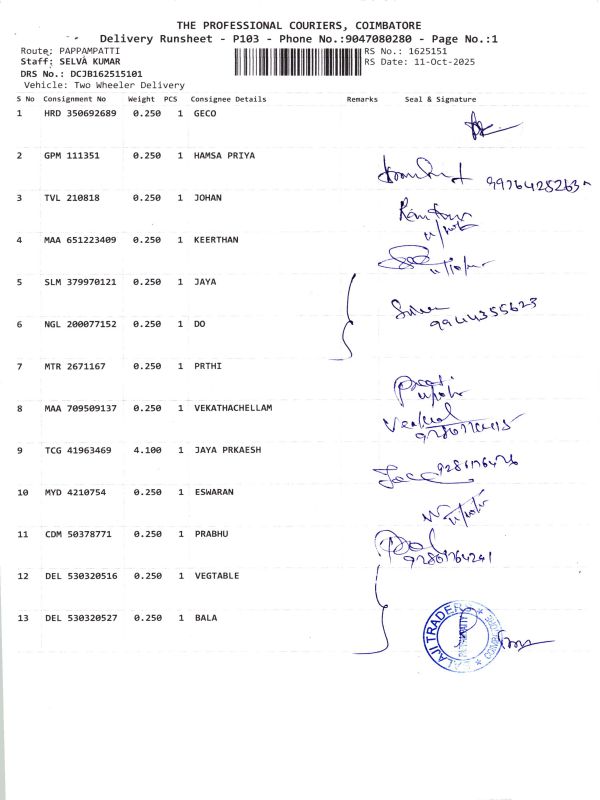 THE PROFESSIONAL COURIERS, COIMBATORE
Delivery Runsheet - P103 - Phone No.:9047080280 - Page No.:1
Route: PAPPAMPATTI RS No.: 1625151
Staff: SELVA KUMAR RS Date: 11-Oct-2025
DRS No.: DCJB162515101
Vehicle: Two Wheeler Delivery
S No Consignment No Weight PCS Consignee Details Remarks Seal & Signature
1 HRD 350692689 0.250 1 GECO
2 GPM 111351 0.250 1 HAMSA PRIYA
3 TVL 210818 0.250 1 JOHAN
4 MAA 651223409 0.250 1 KEERTHAN
5 SLM 379970121 0.250 1 JAYA
9944355623
6 NGL 200077152 0.250 1 DO
7 MTR 2671167 0.250 1 PRTHI
8 MAA 709509137 0.250 1 VEKATHACHELLAM
9 TCG 41963469 4.100 1 JAYA PRKAESH
10 MYD 4210754 0.250 1 ESWARAN
11 CDM 50378771 0.250 1 PRABHU
12 DEL 530320516 0.250 1 VEGTABLE
13 DEL 530320527 0.250 1 BALA